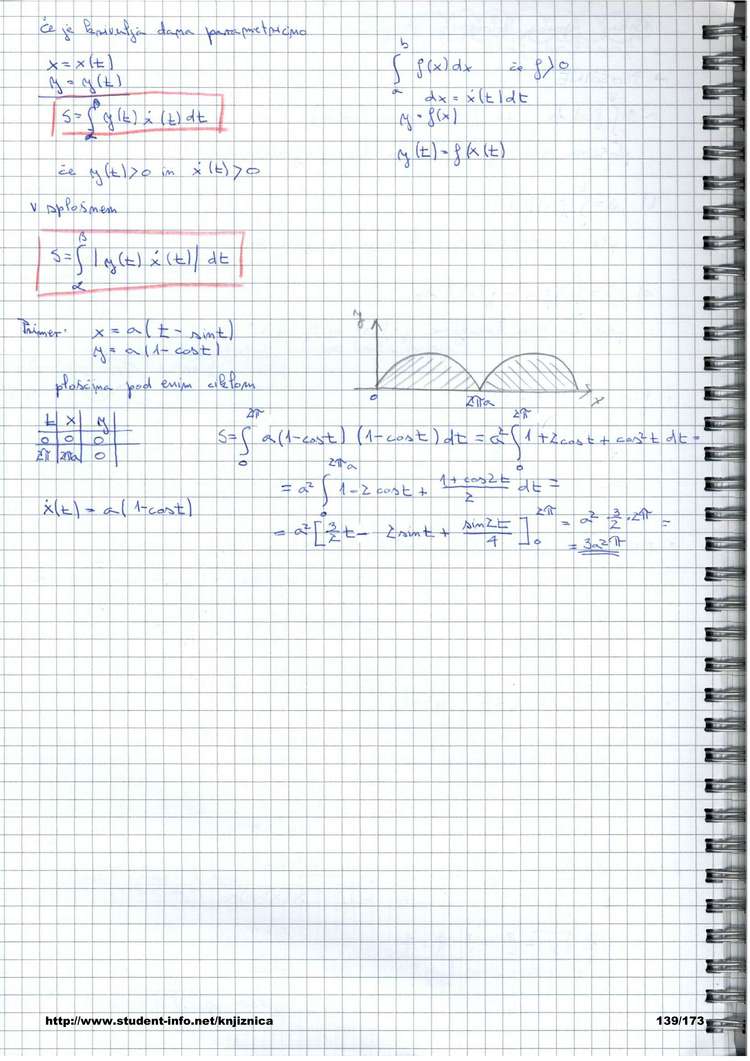 če je krivulja dana parametrično
x = x(t)
y = y(t)
S = ∫_α^β y(t) ẋ(t) dt
če y(t) > 0 in ẋ(t) > 0
∫_a^b f(x) dx če f > 0
dx = ẋ(t) dt
y = f(x)
y(t) = f(x(t)
v splošnem
S = ∫_α^β | y(t) ẋ(t) | dt
Primer: x = a(t - sint)
y = a(1 - cost)
ploščina pod enim ciklom
y
0 2πa x
t x y
0 0 0
2π 2πa 0
ẋ(t) = a(1-cost)
S = ∫_0^2π a(1-cost) (1-cost) dt = a² ∫_0^2π 1 + 2cost + cos²t dt =
= a² ∫_0^2πa 1 - 2cost + (1 + cos2t)/2 dt =
= a² [ 3/2 t - 2sint + sin2t/4 ]_0^2π = a² 3/2 · 2π =
= 3a²π
http://www.student-info.net/knjiznica 139/173